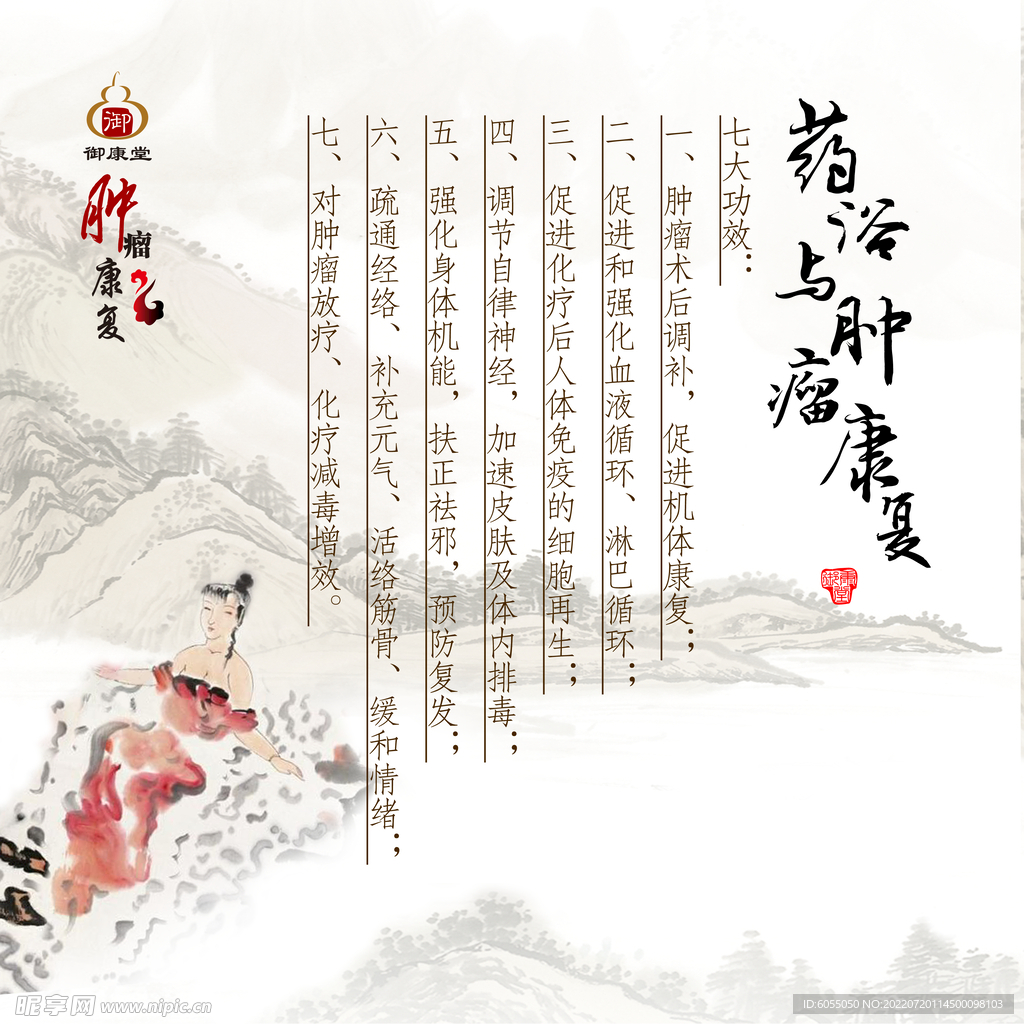 药浴与肿瘤康复
御康堂
七大功效：
一、肿瘤术后调补，促进机体康复；
二、促进和强化血液循环、淋巴循环；
三、促进化疗后人体免疫的细胞再生；
四、调节自律神经，加速皮肤及体内排毒；
五、强化身体机能，扶正祛邪，预防复发；
六、疏通经络、补充元气、活络筋骨、缓和情绪；
七、对肿瘤放疗、化疗减毒增效。
御
御康堂
肿瘤康复
昵享网 www.nipic.cn
ID:6055050 NO:20220720114500098103